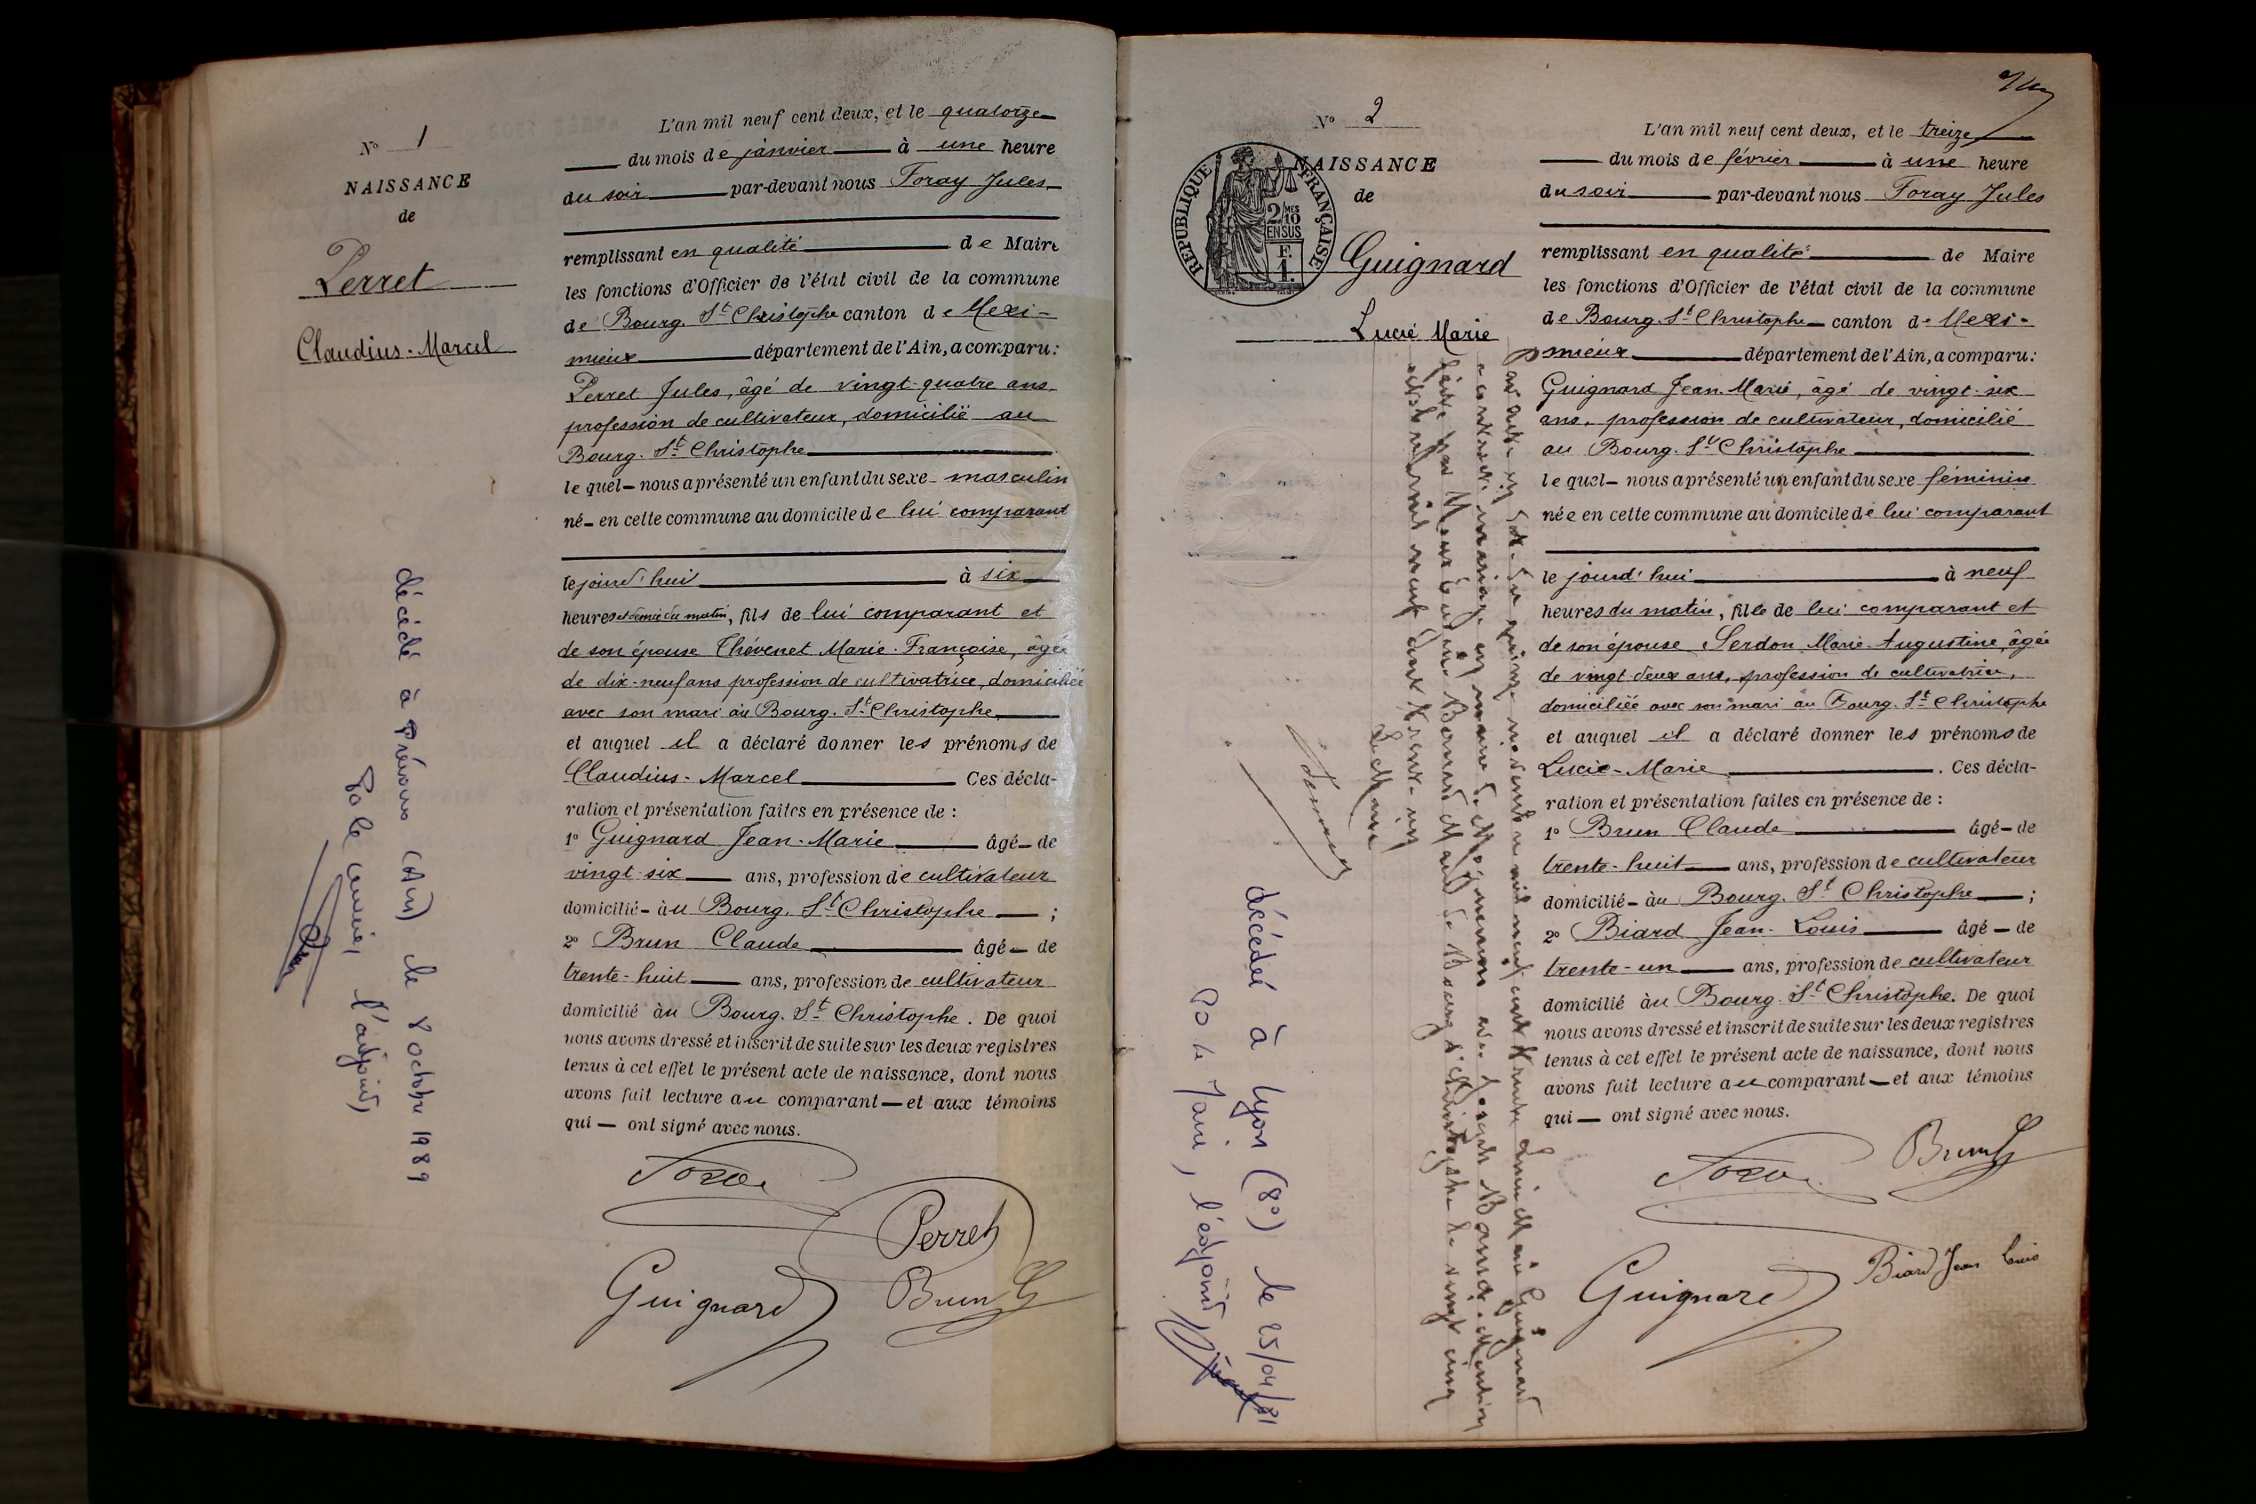 N° 1
NAISSANCE
de
Perret
Claudius-Marcel
décédé à
(Ain) le 8 octobre 1989
l'adjoint,
L'an mil neuf cent deux, et le quatorze
du mois de janvier à une heure
du soir par-devant nous Foray Jules
remplissant en qualité de Maire
les fonctions d'Officier de l'état civil de la commune
de Bourg St Christophe canton de Mexi-
mieux département de l'Ain, a comparu:
Perret Jules, âgé de vingt-quatre ans
profession de cultivateur, domicilié au
Bourg-St Christophe
lequel nous a présenté un enfant du sexe masculin
né en cette commune au domicile de lui comparant
le jourd'hui à six
heures et demie du matin, fils de lui comparant et
de son épouse Thévenet Marie-Françoise, âgée
de dix-neuf ans profession de cultivatrice, domiciliée
avec son mari au Bourg-St Christophe
et auquel il a déclaré donner les prénoms de
Claudius-Marcel Ces décla-
ration et présentation faites en présence de :
1° Guignard Jean-Marie âgé de
vingt-six ans, profession de cultivateur
domicilié au Bourg. St Christophe ;
2° Brun Claude âgé de
trente-huit ans, profession de cultivateur
domicilié au Bourg. St Christophe. De quoi
nous avons dressé et inscrit de suite sur les deux registres
tenus à cet effet le présent acte de naissance, dont nous
avons fait lecture au comparant et aux témoins
qui ont signé avec nous.
Foray
Perret
Guignard
Brun
N° 2
NAISSANCE
de
RÉPUBLIQUE FRANÇAISE
2/10 MES
EN SUS
Guignard
Lucie Marie
Par acte en date du quinze novembre mil neuf cent trente Lucie Marie Guignard
a contracté mariage en mairie de avec Joseph
Le Maire
décédée à Lyon (8°) le 25/04/81
Po le Maire, l'adjoint,
L'an mil neuf cent deux, et le treize
du mois de février à une heure
du soir par-devant nous Foray Jules
remplissant en qualité de Maire
les fonctions d'Officier de l'état civil de la commune
de Bourg-St Christophe canton de Mexi-
mieux département de l'Ain, a comparu:
Guignard Jean-Marie, âgé de vingt-six
ans, profession de cultivateur, domicilié
au Bourg-St Christophe
lequel nous a présenté un enfant du sexe féminin
née en cette commune au domicile de lui comparant
le jourd'hui à neuf
heures du matin, fille de lui comparant et
de son épouse Serdon Marie-Augustine, âgée
de vingt-deux ans, profession de cultivatrice,
domiciliée avec son mari au Bourg-St Christophe
et auquel il a déclaré donner les prénoms de
Lucie-Marie . Ces décla-
ration et présentation faites en présence de :
1° Brun Claude âgé de
trente-huit ans, profession de cultivateur
domicilié au Bourg. St Christophe ;
2° Biard Jean-Louis âgé de
trente-un ans, profession de cultivateur
domicilié au Bourg-St Christophe. De quoi
nous avons dressé et inscrit de suite sur les deux registres
tenus à cet effet le présent acte de naissance, dont nous
avons fait lecture au comparant et aux témoins
qui ont signé avec nous.
Foray
Brun
Guignard
Biard Jean Louis